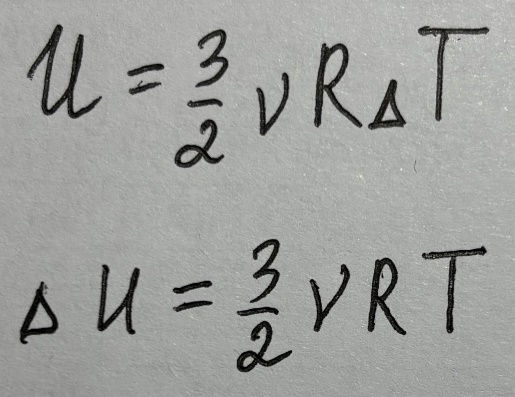 U = 3/2 ν R Δ T
Δ U = 3/2 ν R T